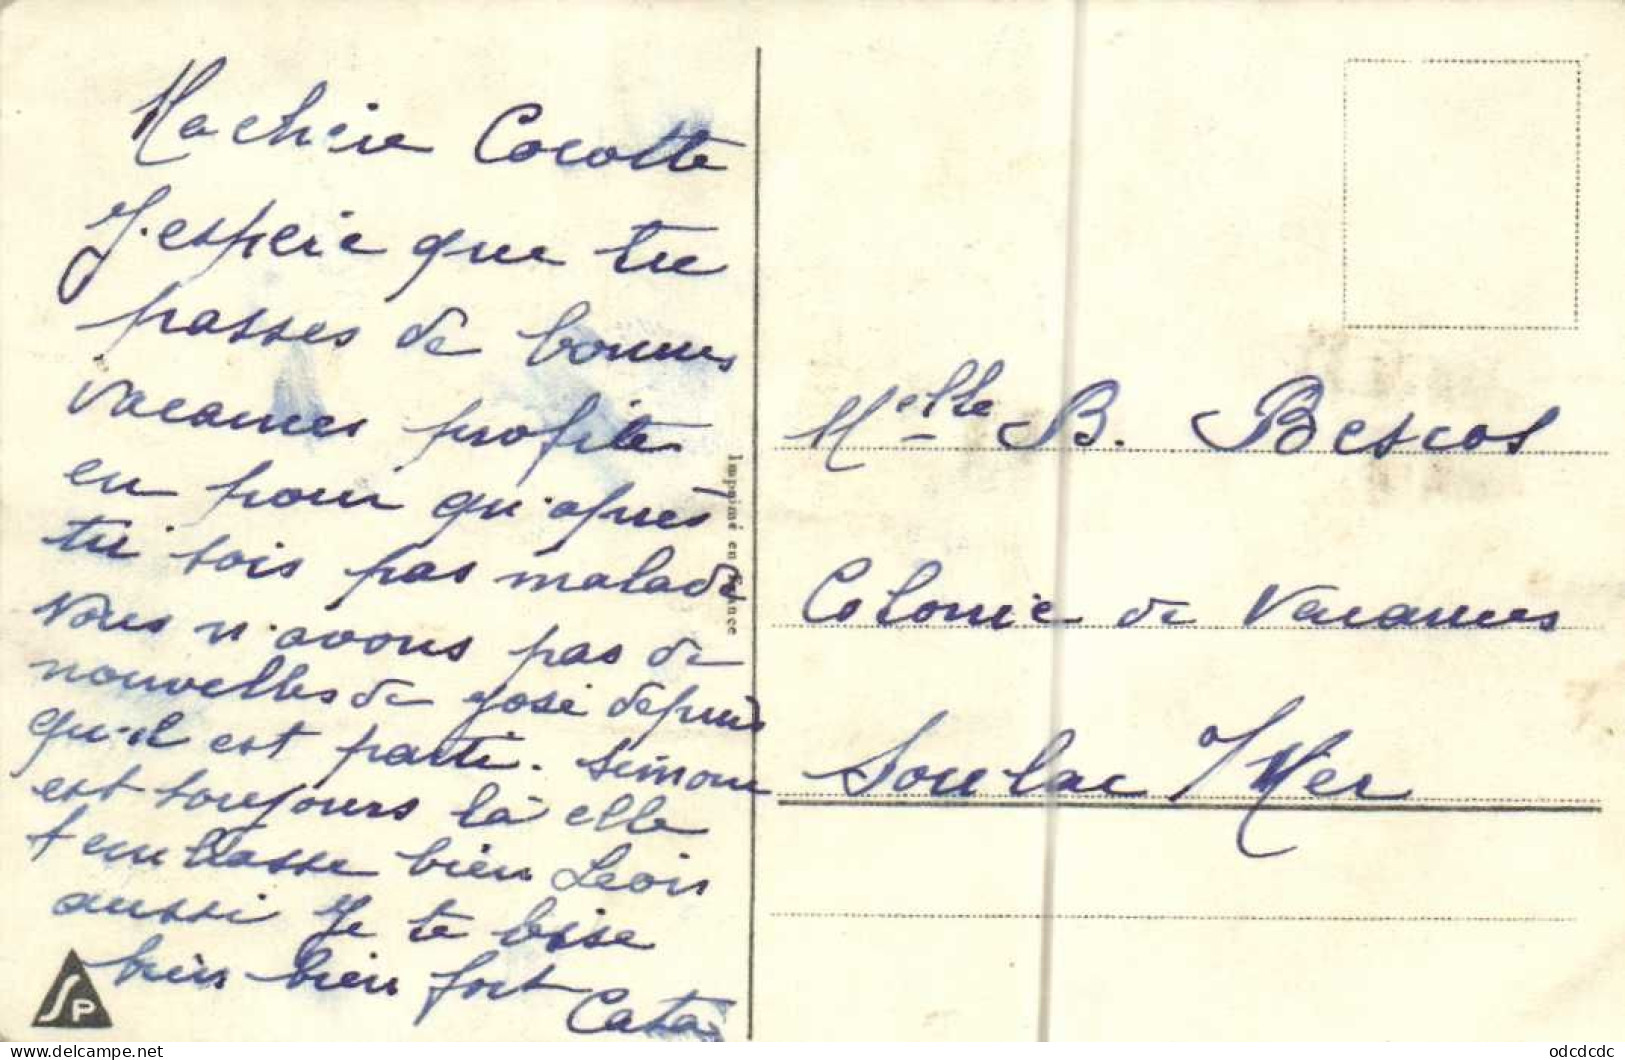 Ma chérie Cocotte
J'espère que tu
passes de bonnes
vacances profite
en pour qu'après
tu sois pas malade
Nous n'avons pas de
nouvelles de José depuis
qu'il est parti. Simone
est toujours là elle
t'embrasse bien Léon
aussi Je te bise
bien bien fort
Cata
SP
Imprimé en France
Melle B. Bescos
Colonie de Vacances
Soulac s/ Mer
delcampe.net
odcdcdc